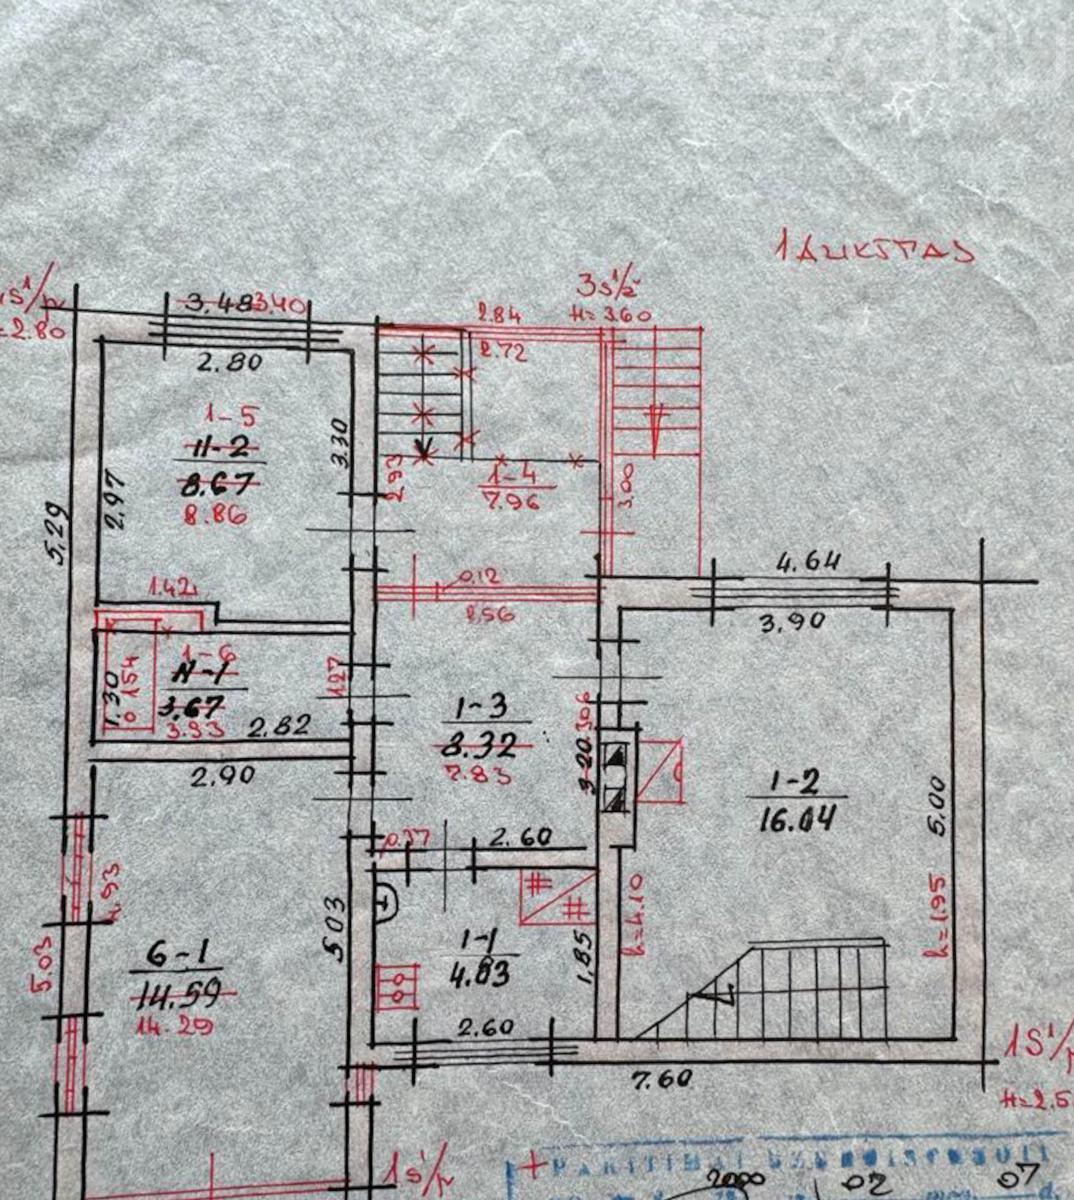 1 AUKŠTAS
1s1/p
=2.80
3.48 3.40
2.80
1-5
II-2
8.67
8.86
3.30
2.97
5.29
3s1/ž
H=3.60
2.84
2.72
1-4
7.96
2.93
3.00
0.12
2.56
1.42
1-6
II-1
3.67
3.93
1.30
1.54
1.27
2.82
2.90
1-3
8.32
7.83
3.20
3.06
0.37
2.60
4.64
3.90
1-2
16.04
5.00
h=4.10
h=1.95
6-1
14.59
14.29
5.03
4.93
5.03
1-1
4.83
1.85
2.60
7.60
1S1/p
H=2.5
1s1/p
2000 02 07